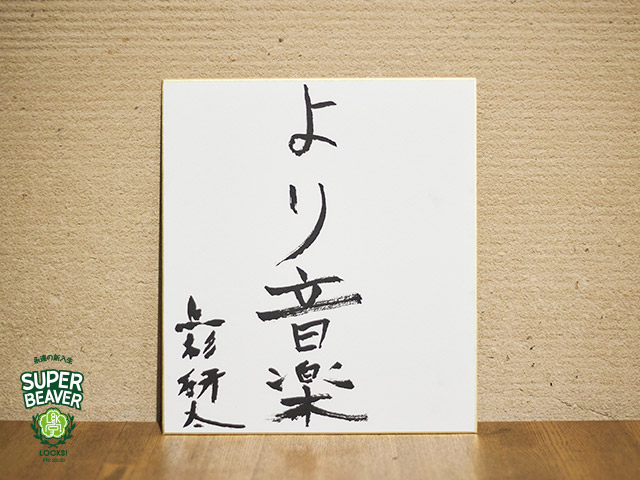 より音楽
上杉研太
永遠の新入生
SUPER
BEAVER
LOCKS!